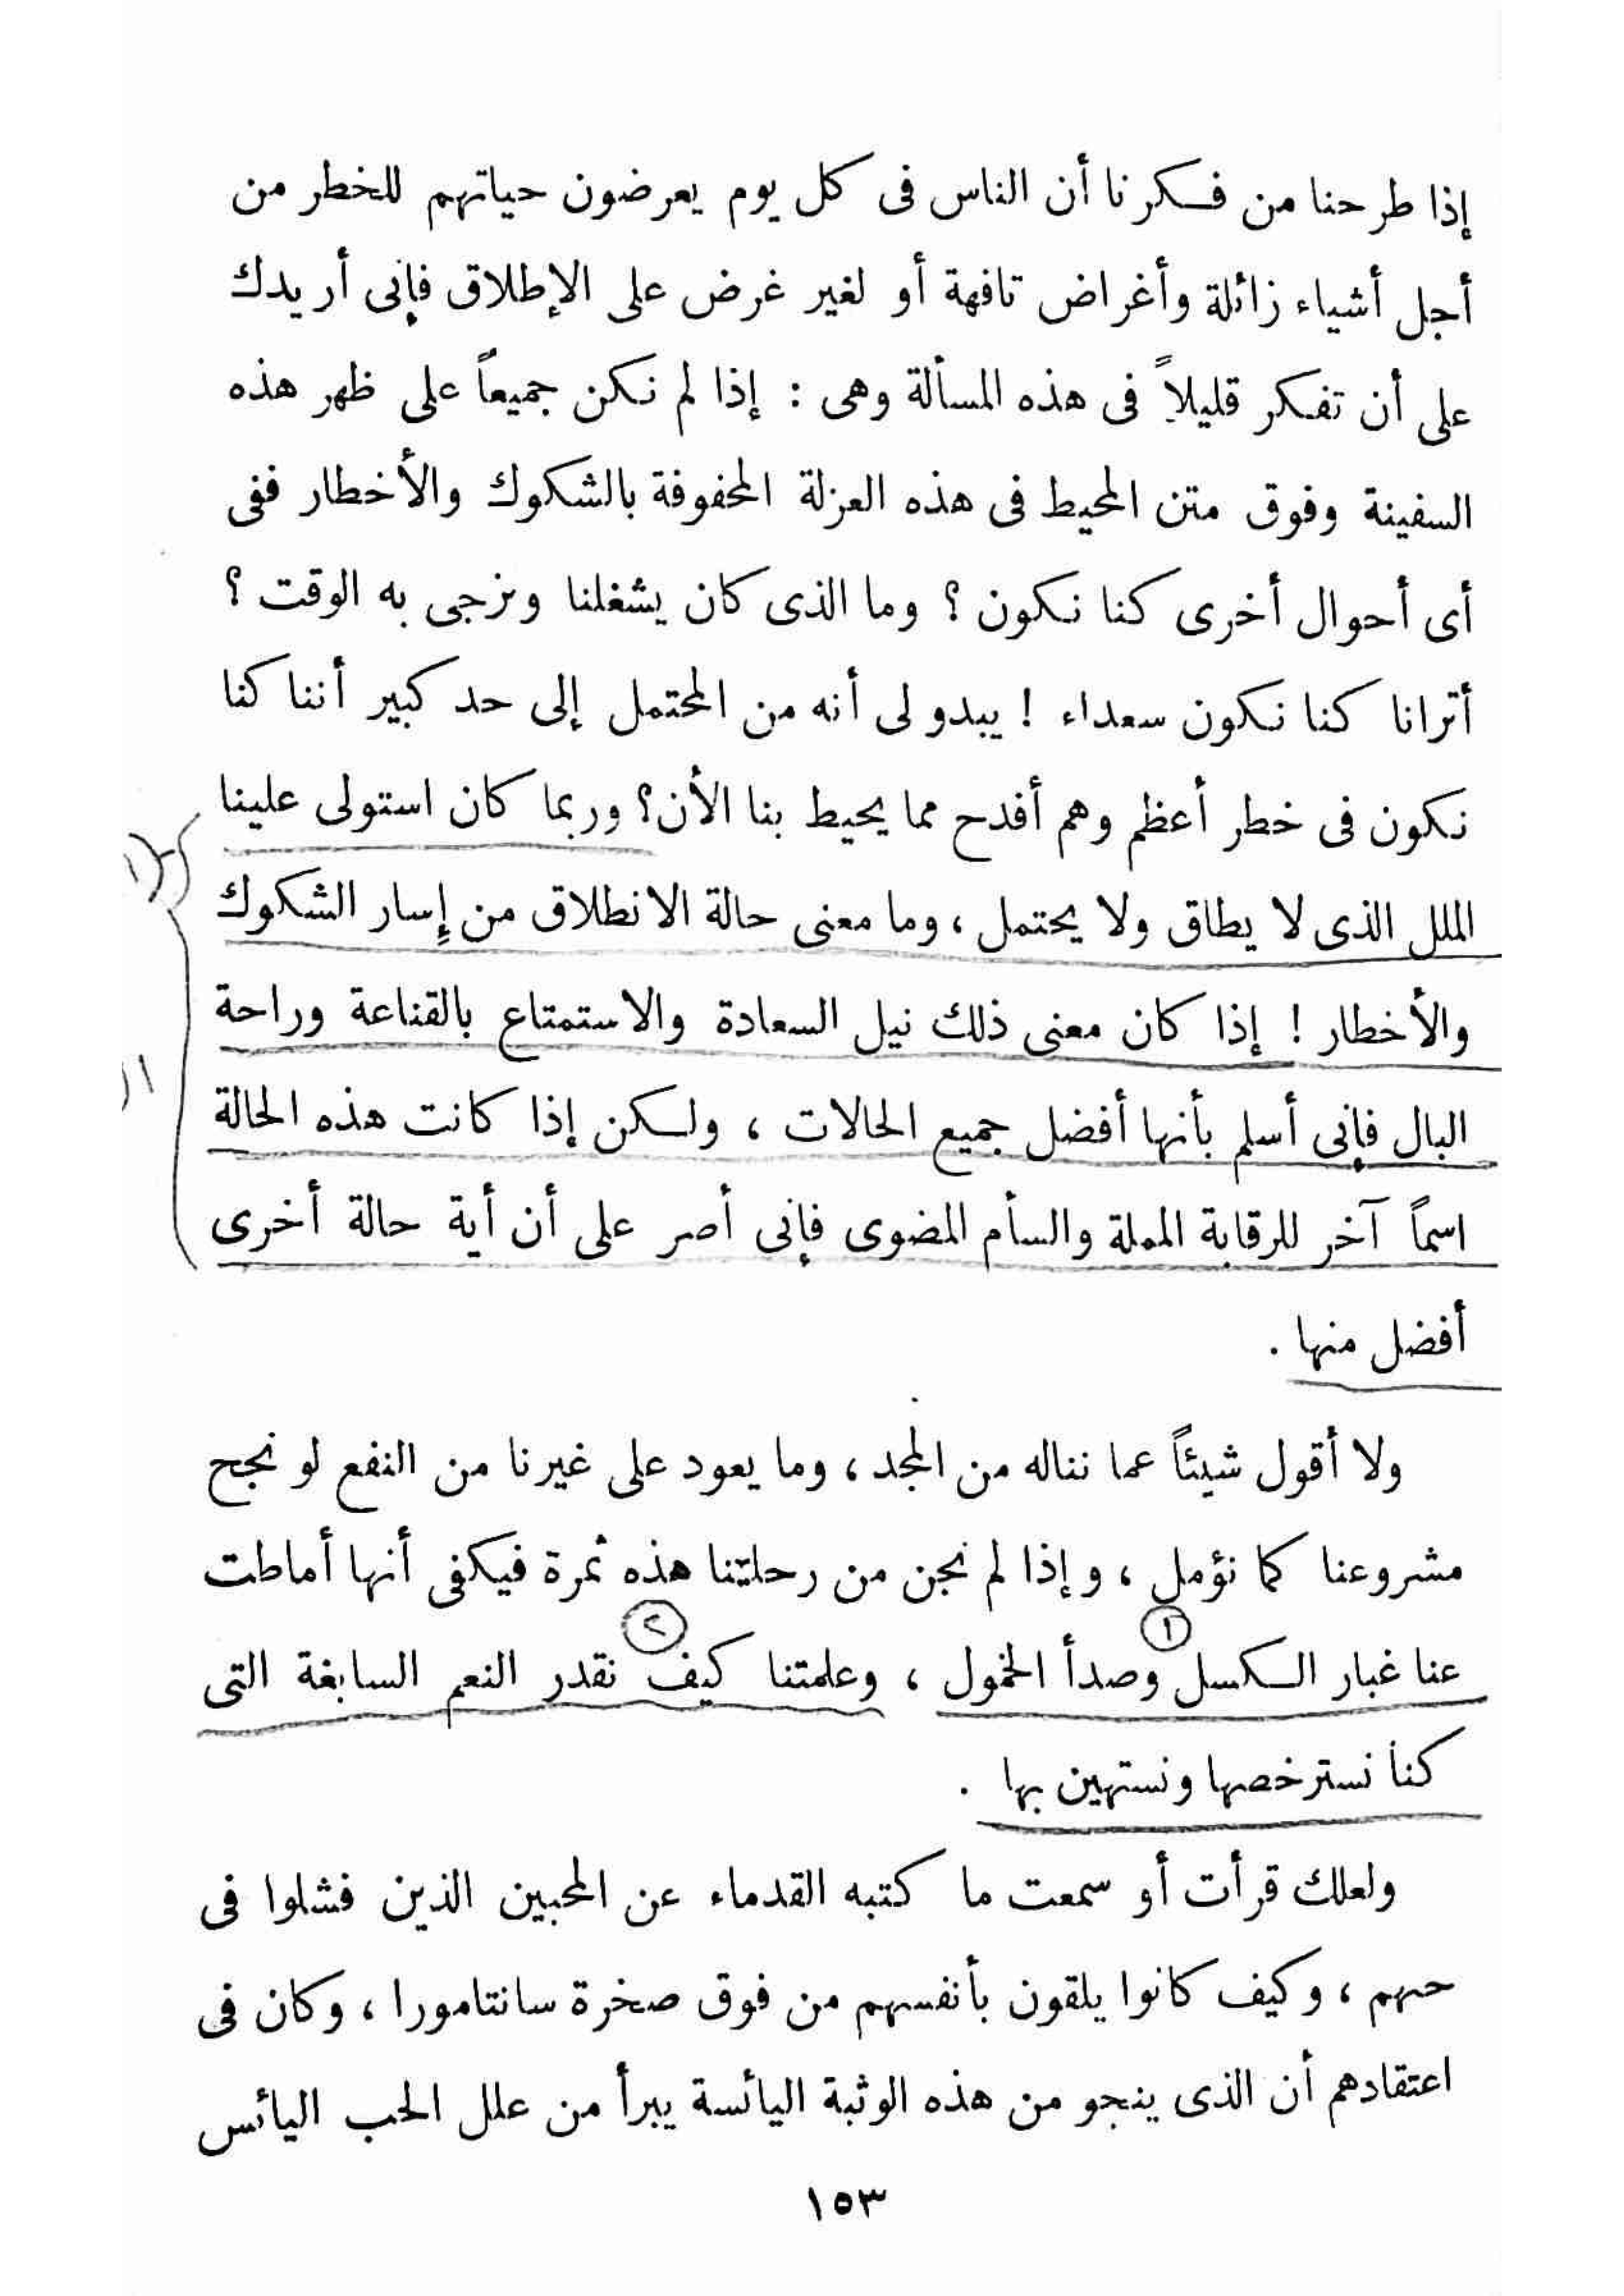 إذا طرحنا من فكرنا أن الناس فى كل يوم يعرضون حياتهم للخطر من
أجل أشياء زائلة وأغراض تافهة أو لغير غرض على الإطلاق فإنى أريدك
على أن تفكر قليلاً فى هذه المسألة وهى : إذا لم نكن جميعاً على ظهر هذه
السفينة وفوق متن المحيط فى هذه العزلة المحفوفة بالشكوك والأخطار ففى
أى أحوال أخرى كنا نكون ؟ وما الذى كان يشغلنا ونزجى به الوقت ؟
أترانا كنا نكون سعداء ! يبدو لى أنه من المحتمل إلى حد كبير أننا كنا
نكون فى خطر أعظم وهم أفدح مما يحيط بنا الأن؟ وربما كان استولى علينا
الملل الذى لا يطاق ولا يحتمل ، وما معنى حالة الانطلاق من إسار الشكوك
والأخطار ! إذا كان معنى ذلك نيل السعادة والاستمتاع بالقناعة وراحة
البال فإنى أسلم بأنها أفضل جميع الحالات ، ولكن إذا كانت هذه الحالة
اسماً آخر للرقابة المملة والسأم المضوى فإنى أصر على أن أية حالة أخرى
أفضل منها .
ولا أقول شيئاً عما نناله من المجد ، وما يعود على غيرنا من النفع لو نجح
مشروعنا كما نؤمل ، وإذا لم نجن من رحلتنا هذه ثمرة فيكفى أنها أماطت
١ ٢
عنا غبار الكسل وصدأ الخمول ، وعلمتنا كيف نقدر النعم السابغة التى
كنا نسترخصها ونستهين بها .
ولعلك قرأت أو سمعت ما كتبه القدماء عن المحبين الذين فشلوا فى
حبهم ، وكيف كانوا يلقون بأنفسهم من فوق صخرة سانتامورا ، وكان فى
اعتقادهم أن الذى ينجو من هذه الوثبة اليائسة يبرأ من علل الحب اليائس
١٥٣